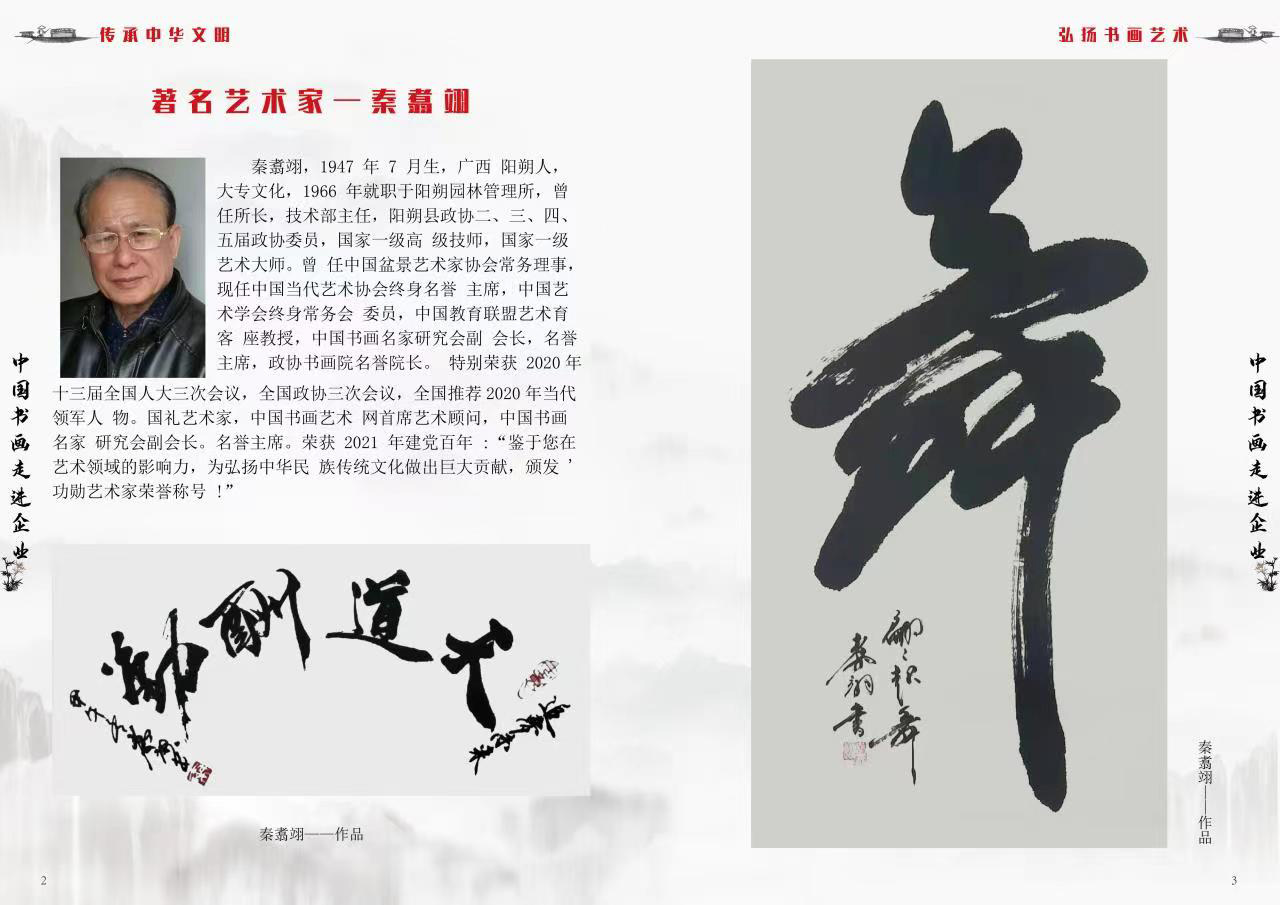 传承中华文明
弘扬书画艺术
著名艺术家—秦翥翊
秦翥翊，1947 年 7 月生，广西 阳朔人，
大专文化，1966 年就职于阳朔园林管理所，曾
任所长，技术部主任，阳朔县政协二、三、四、
五届政协委员，国家一级高 级技师，国家一级
艺术大师。曾 任中国盆景艺术家协会常务理事，
现任中国当代艺术协会终身名誉 主席，中国艺
术学会终身常务会 委员，中国教育联盟艺术育
客 座教授，中国书画名家研究会副 会长，名誉
主席，政协书画院名誉院长。 特别荣获 2020 年
十三届全国人大三次会议，全国政协三次会议，全国推荐 2020 年当代
领军人 物。国礼艺术家，中国书画艺术 网首席艺术顾问，中国书画
名家 研究会副会长。名誉主席。荣获 2021 年建党百年 :“鉴于您在
艺术领域的影响力，为弘扬中华民 族传统文化做出巨大贡献，颁发 ’
功勋艺术家荣誉称号 !”
中国书画走进企业
天道酬勤
秦翥翊——作品
2
舞
翩々起舞
秦翊书
秦翥翊——作品
中国书画走进企业
3